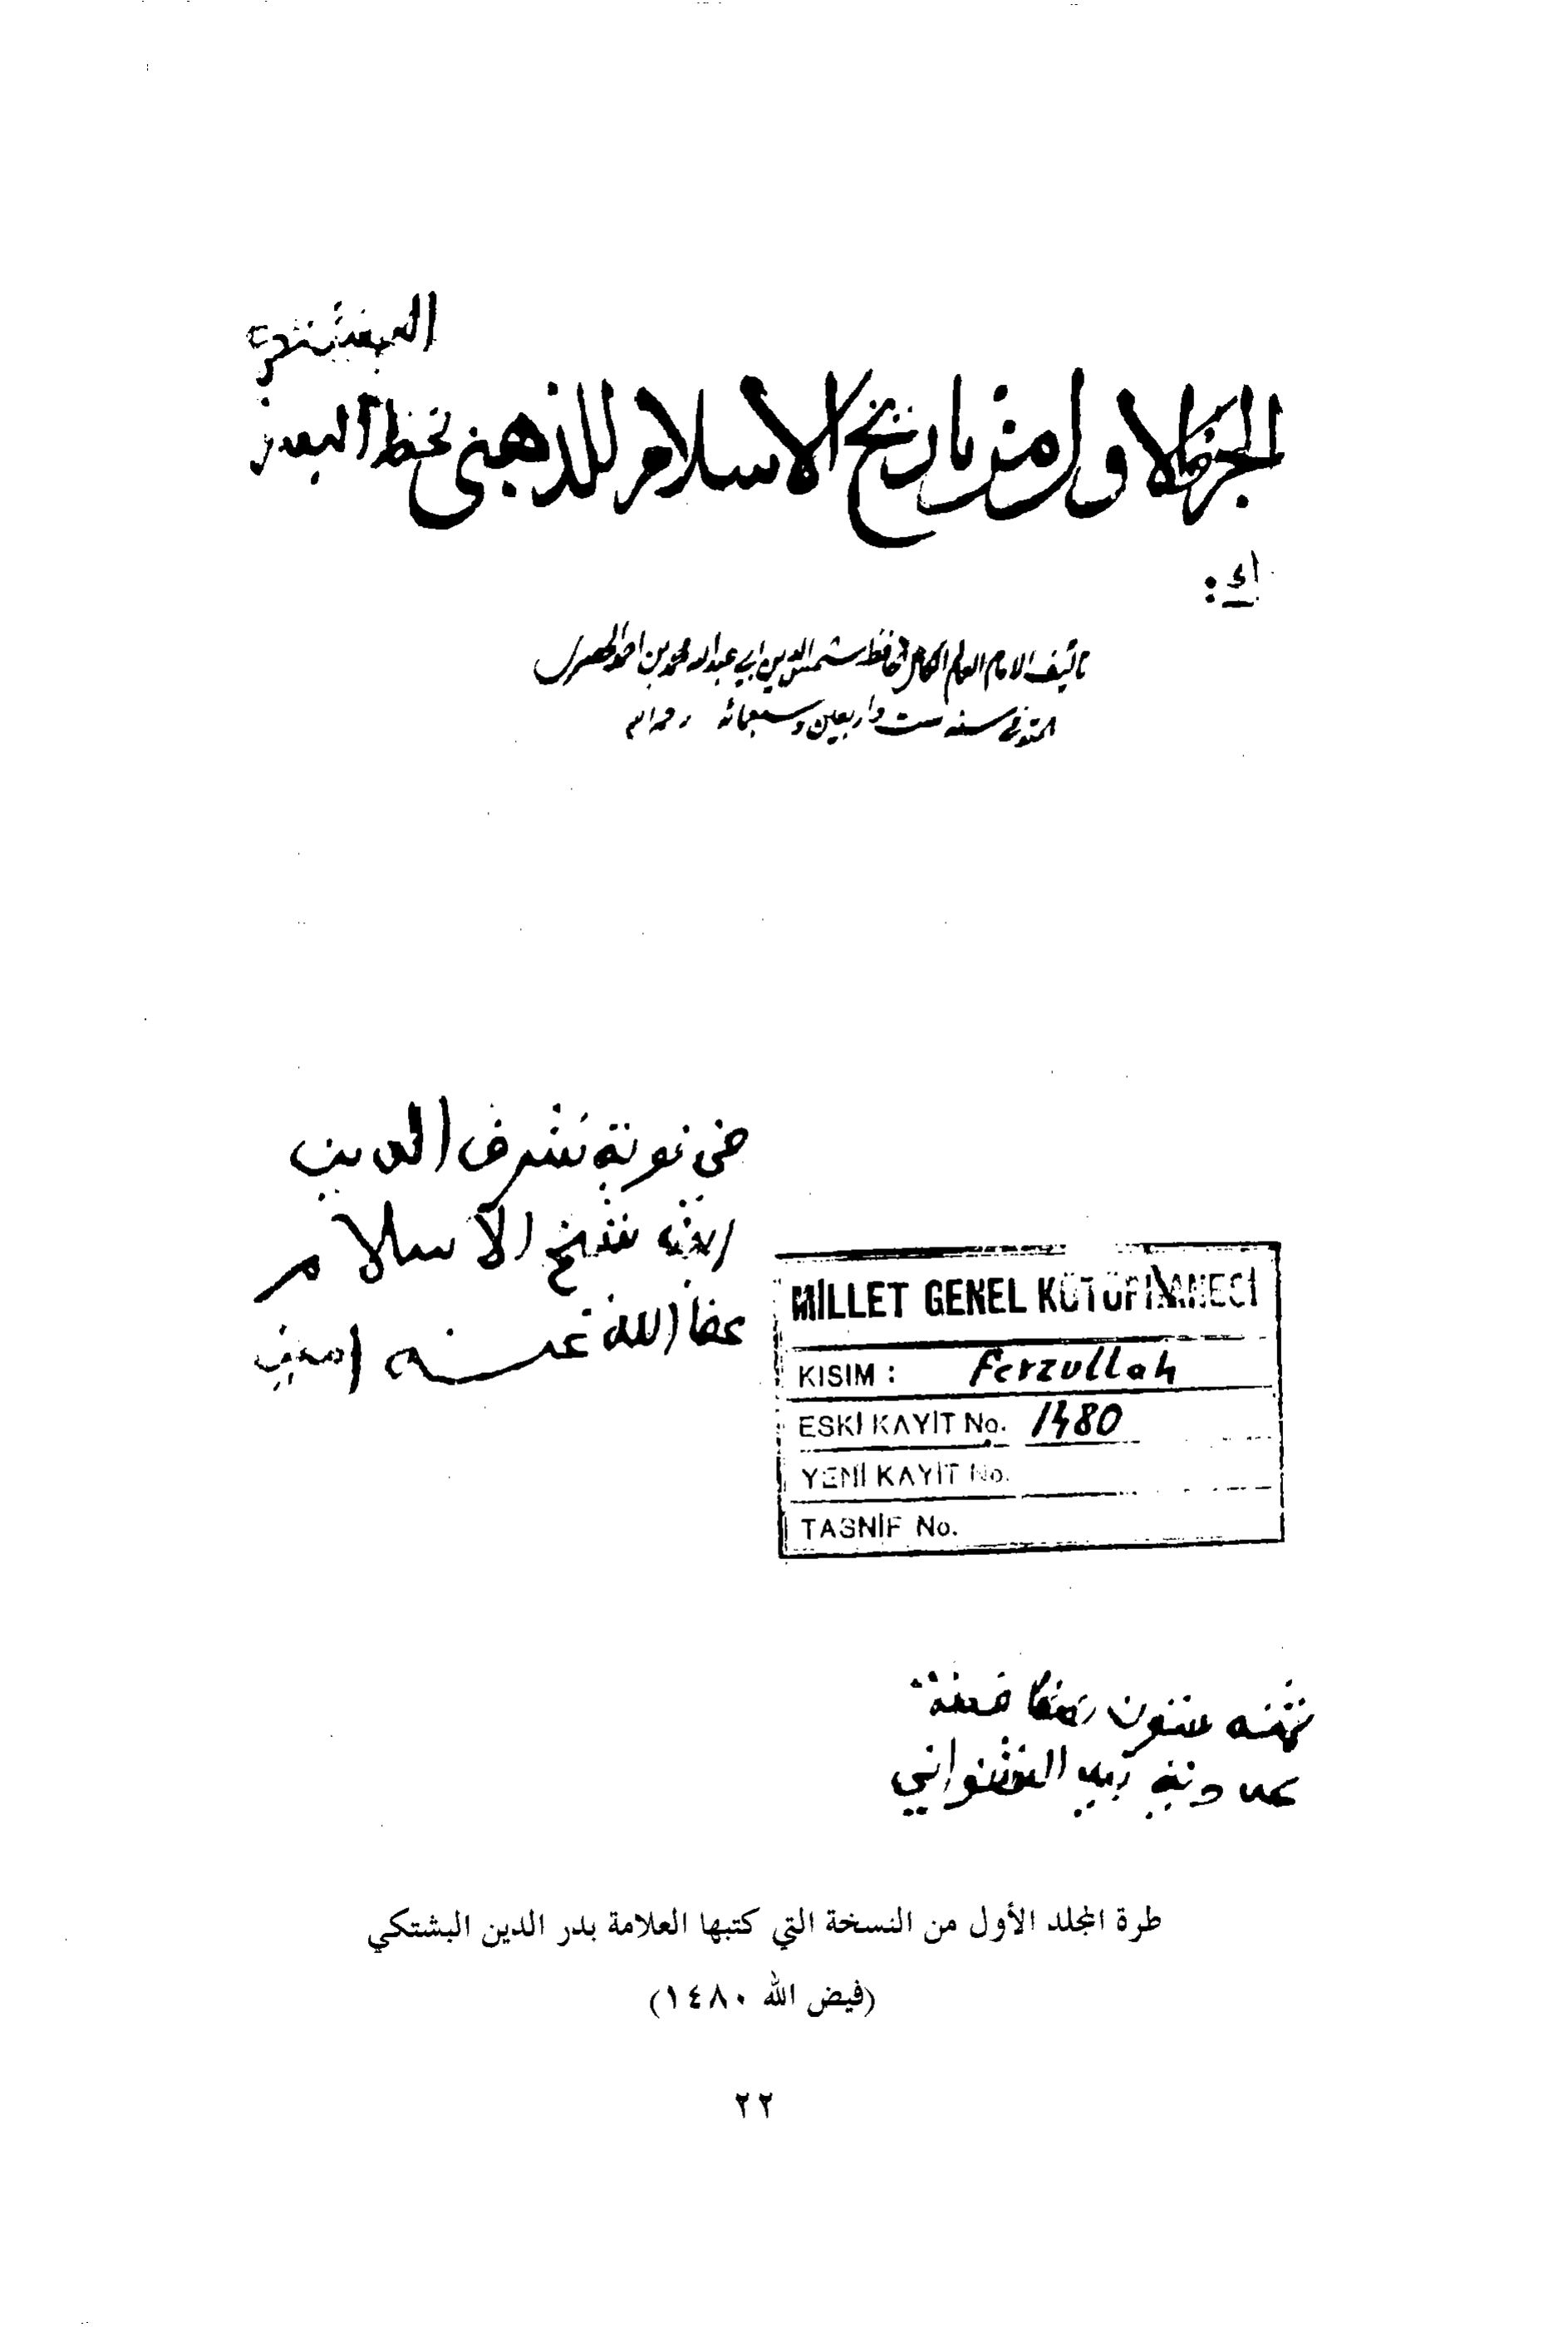 البشتكي
الجزء الاول من تاريخ الاسلام للذهبي بخط البدر
تأليف الامام العالم الحافظ شمس الدين ابي عبدالله محمد بن احمد
المتوفى سنة ست واربعين وسبعمائة رحمه الله
في نوبة شرف الدين
ابن شيخ الاسلام
عفا الله عنه امين
MİLLET GENEL KÜTÜPHANESİ
KISIM : Feyzullah
ESKİ KAYIT No. 1480
YENİ KAYIT No.
TASNİF No.
ثمنه عشرون
طرة المجلد الأول من النسخة التي كتبها العلامة بدر الدين البشتكي
(فيض الله ١٤٨٠)
٢٢